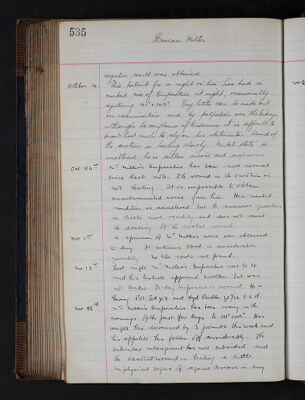 535
Duncan Miller
negative result was obtained.
October 14. This patient for a night or two has had a
marked rise of temperature at night, occasionally
registering 101° - 103°. Very little can be made out
on examination and by palpation over the kidneys
although he complains of tenderness it is difficult to
know how much to rely on his statements. Wound of
the scrotum is healing slowly. Mental state is
unaltered, he is sullen and
Oct 24th Mr Miller's temperature has been normal
since last note. The wound in the scrotum is
not healing. It is impossible to obtain
uncontaminated urine from him. His mental
condition is unaltered but he answers questions
a little more readily and does not resist
the dressing of the scrotal wound.
Nov 5th A specimen of Mr Miller's urine was obtained
to day. It contains blood in considerable
quantity. No tube casts were found.
Nov 15th Last night Mr Miller's temperature rose to
and his testicle appeared swollen but was
not tender. To-day temperature is normal.
having Pot Iod and Hyd
Nov 29th Mr Miller's temperature has been rising in the
evenings of the past few days to
weight has decreased by 2 pounds this week and
his appetite has fallen off considerably. The
testicular enlargement has not subsided and
the wound is healing a little.
No physical signs of disease in any